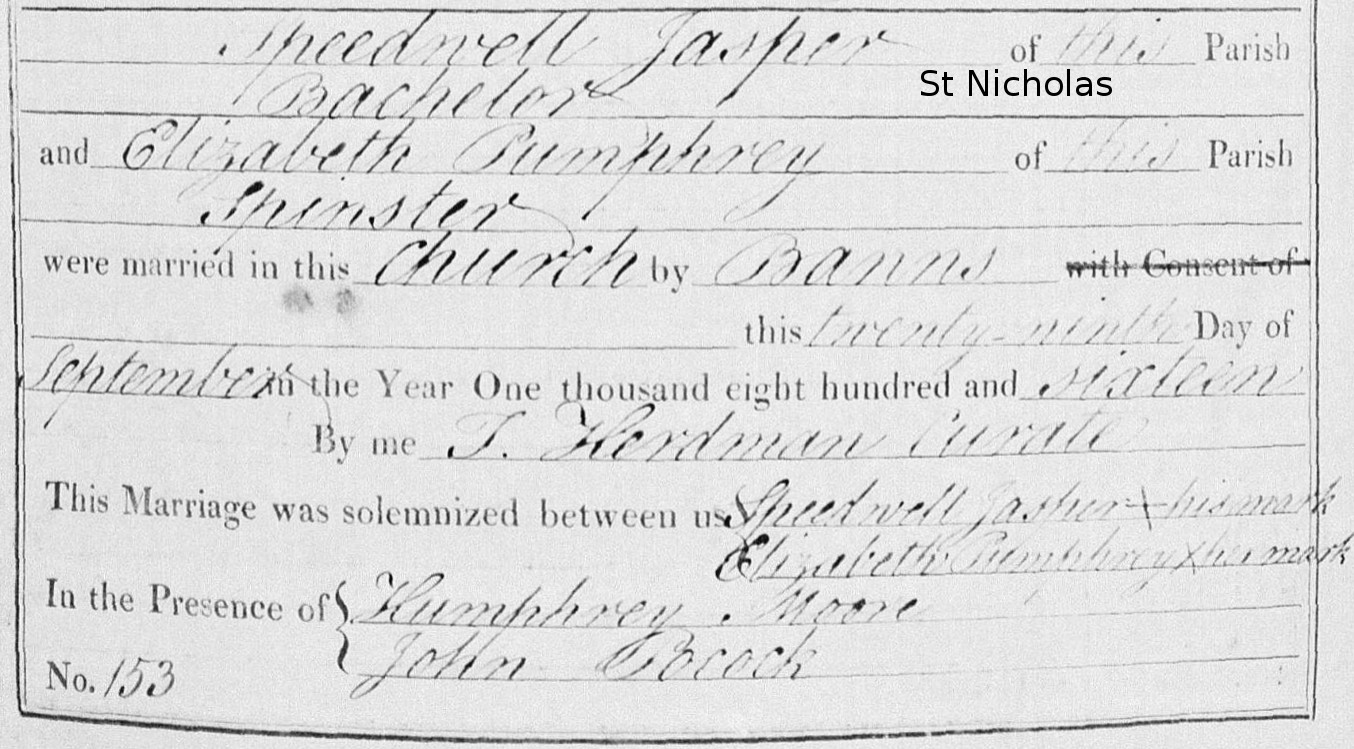 Speedwell Jasper of this Parish
St Nicholas
Bachelor
and Elizabeth Pumphrey of this Parish
Spinster
were married in this Church by Banns with Consent of
this twenty-ninth Day of
September in the Year One thousand eight hundred and sixteen
By me T. Herdman Curate
This Marriage was solemnized between us Speedwell Jasper + his mark
Elizabeth Pumphrey X her mark
In the Presence of Humphrey Moore
John Pocock
No. 153